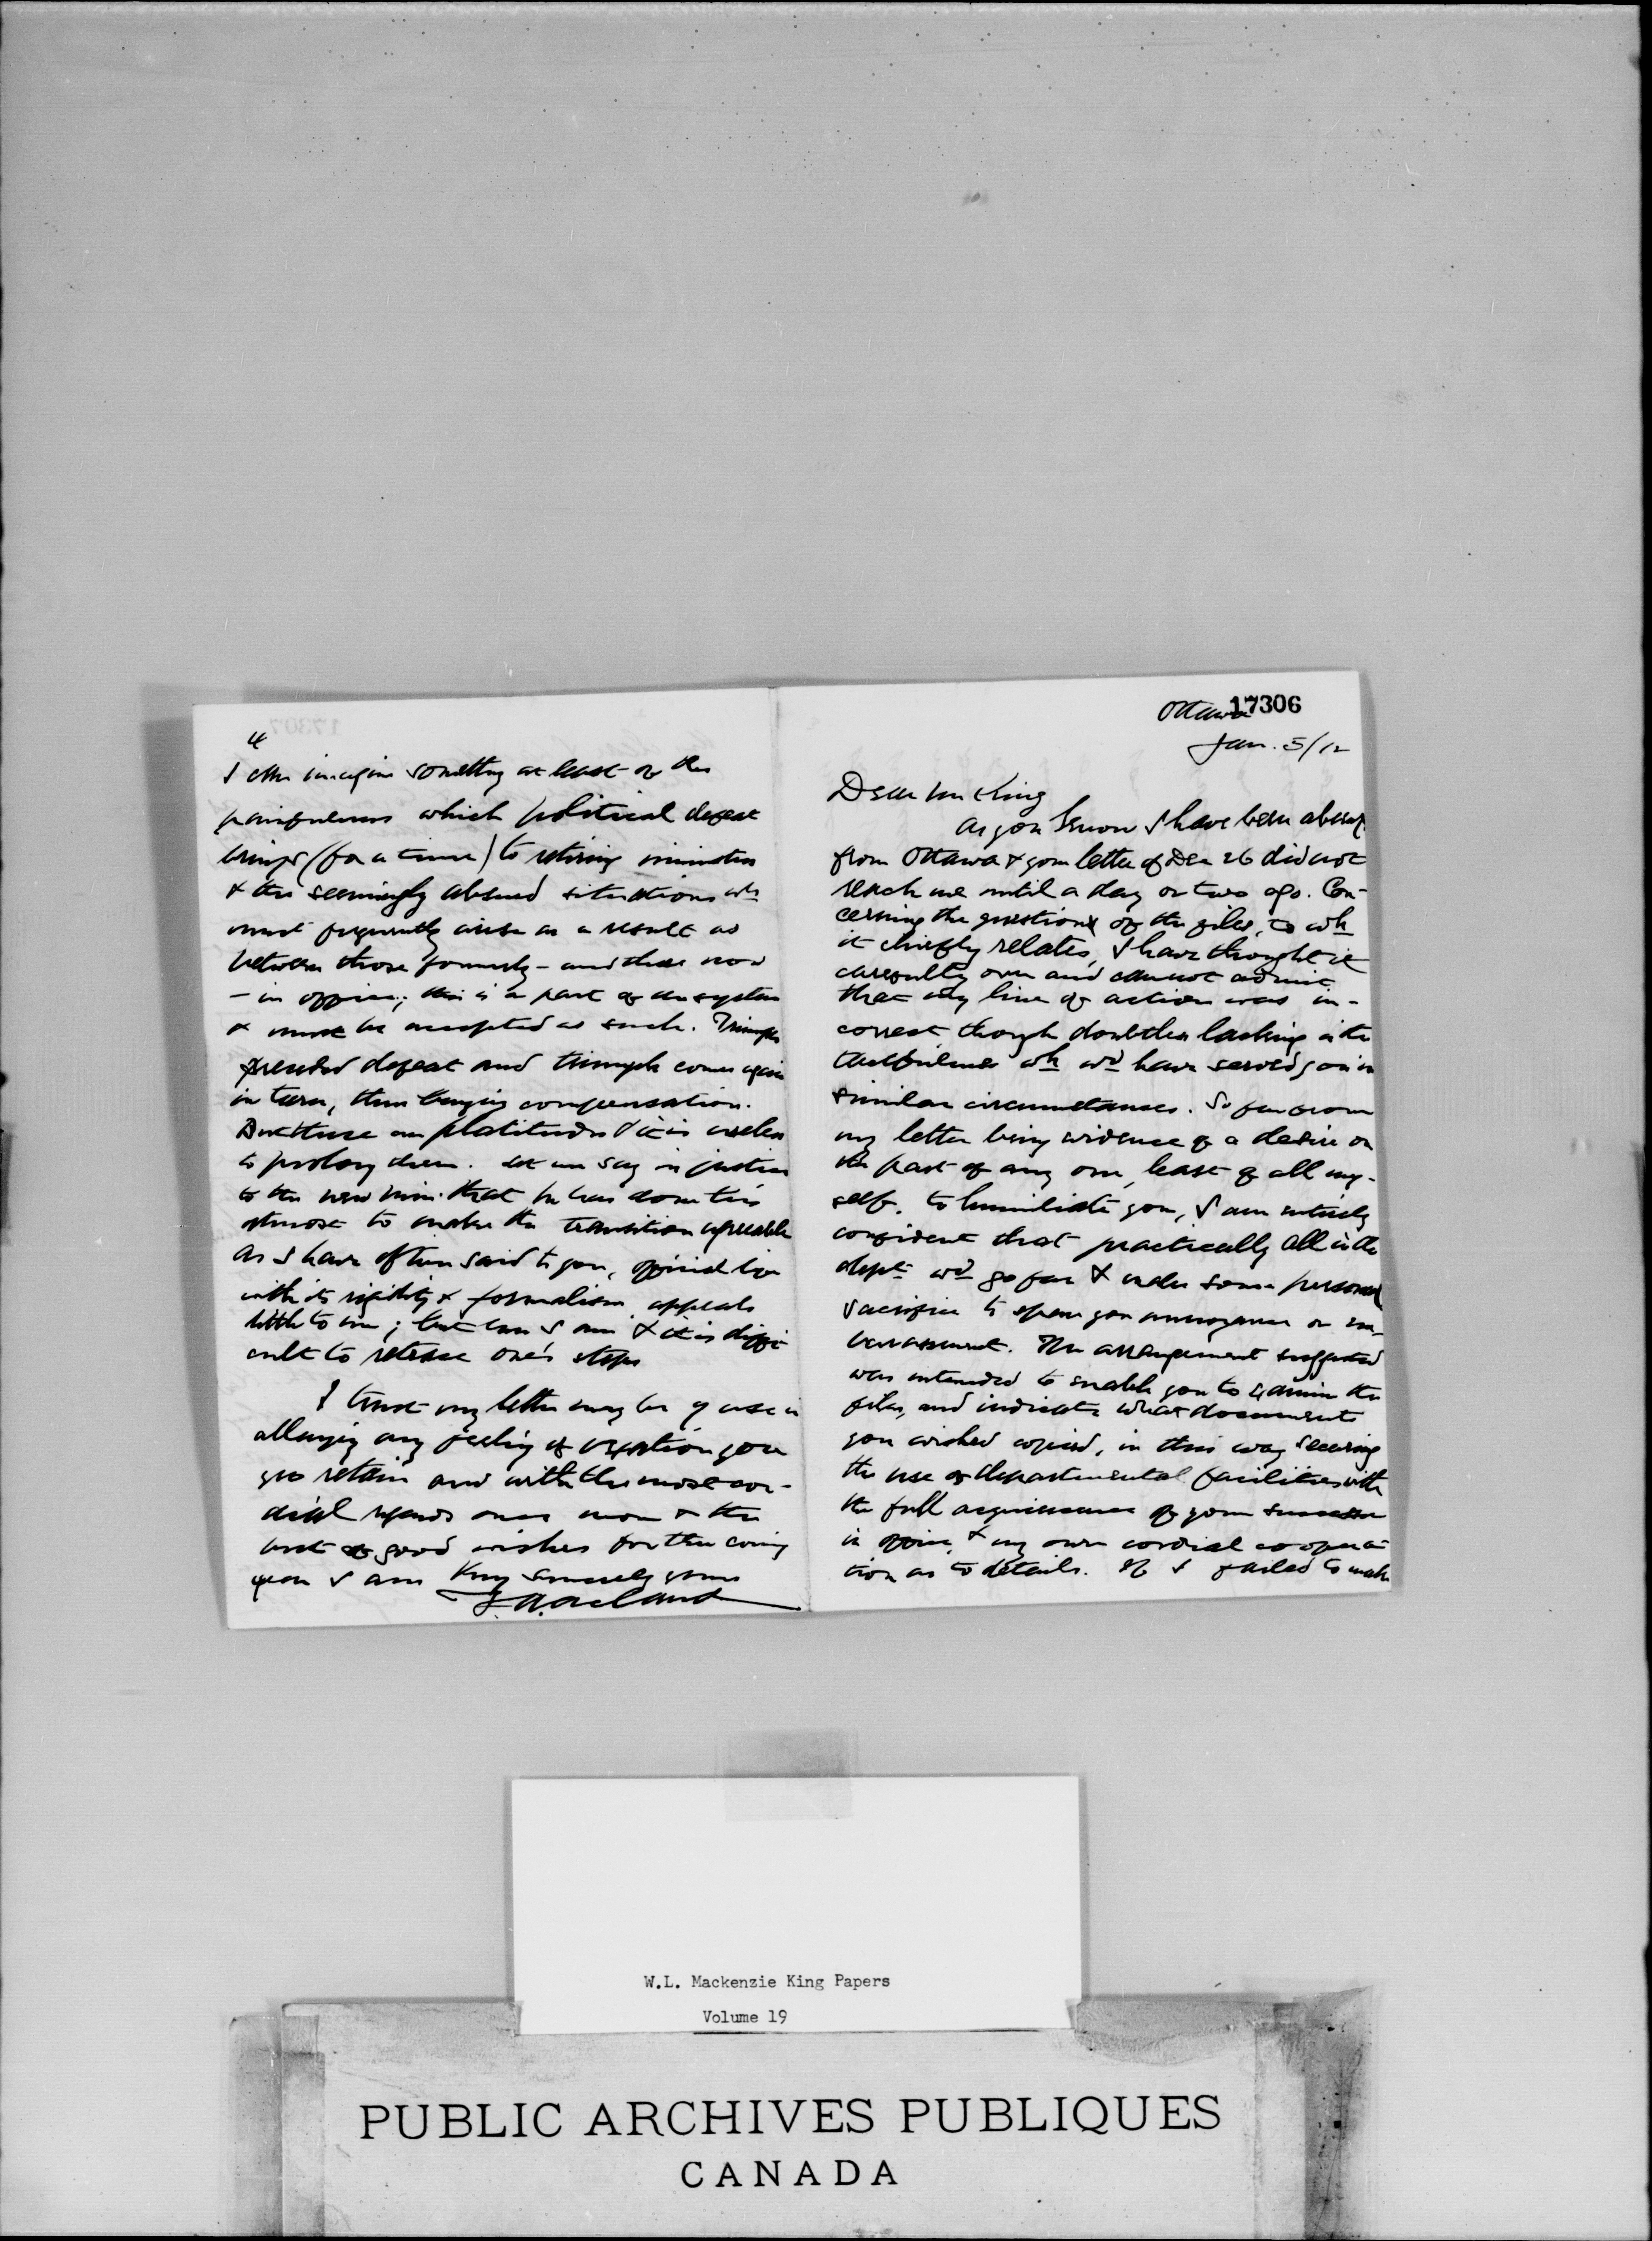 17306
Ottawa
Jan. 5/12
Dear Mr King
As you know I have been absent
from Ottawa & your letter of Dec 26 did not
reach me until a day or two ago. Con-
cerning the question of the files, to wh
it chiefly relates, I have thought it
carefully over and cannot admit
that my line of action was in-
correct though doubtless lacking in the
wh wd have served you in
similar circumstances. So far from
my letter being evidence of a desire on
the part of any one, least of all my-
self, to humiliate you, I am entirely
confident that practically all in the
dept wd go far & make some personal
sacrifice to spare you annoyance or em-
barrassment. The arrangement suggested
was intended to enable you to examine the
files, and indicate what documents
you wished copied, in this way securing
the use of departmental facilities with
the full acquiescence of your successor
in office & my own cordial coopera-
tion as to details. If I failed to make
4
I can imagine something at least of the
painfulness which political defeat
brings (for a time) to retiring ministers
& the seemingly absurd situations wh
must frequently arise as a result as
between those formerly - and those now
- in office; this is a part of our system
& must be accepted as such. Triumph
preceded defeat and triumph comes again
in turn, thus bringing compensation.
But these are platitudes & it is useless
to prolong them. Let me say in justice
to the new Min. that he has done his
utmost to make the transition agreeable
As I have often said to you, official life
with its rigidity & formalism appeals
little to me; but here I am & it is diffi-
cult to retrace one's steps
I trust my letter may be of use in
allaying any feeling of vexation you
yet retain and with the most cor-
dial regards once more & the
best of good wishes for the coming
year I am Very sincerely yours
F.A. Acland
W.L. Mackenzie King Papers
Volume 19
PUBLIC ARCHIVES PUBLIQUES
CANADA